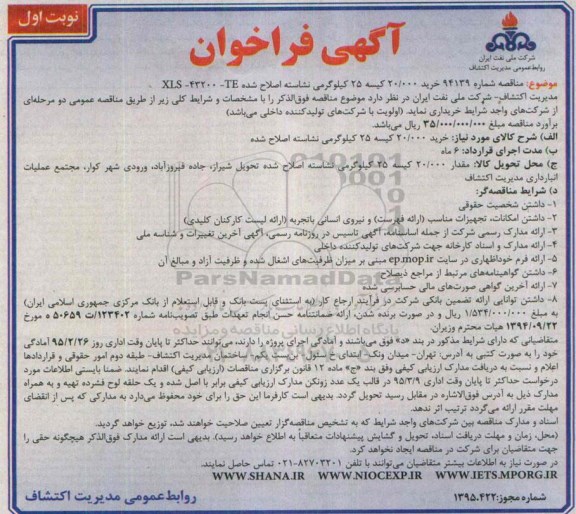 نوبت اول
آگهی فراخوان
شرکت ملی نفت ایران
روابط‌عمومی مدیریت اکتشاف
موضوع: مناقصه شماره ۹۴۱۳۹ خرید ۲۰/۰۰۰ کیسه ۲۵ کیلوگرمی نشاسته اصلاح شده XLS -۴۳۲۰۰ -TE
مدیریت اکتشاف- شرکت ملی نفت ایران در نظر دارد موضوع مناقصه فوق‌الذکر را با مشخصات و شرایط کلی زیر از طریق مناقصه عمومی دو مرحله‌ای
از شرکت‌های واجد شرایط خریداری نماید. (اولویت با شرکت‌های تولیدکننده داخلی می‌باشد)
برآورد مناقصه مبلغ ۳۵/۰۰۰/۰۰۰/۰۰۰ ریال می‌باشد.
الف) شرح کالای مورد نیاز: خرید ۲۰/۰۰۰ کیسه ۲۵ کیلوگرمی نشاسته اصلاح شده
ب) مدت اجرای قرارداد: ۶ ماه
ج) محل تحویل کالا: مقدار ۲۰/۰۰۰ کیسه ۲۵ کیلوگرمی نشاسته اصلاح شده تحویل شیراز، جاده فیروزآباد، ورودی شهر کوار، مجتمع عملیات
انبارداری مدیریت اکتشاف
د) شرایط مناقصه‌گر:
۱- داشتن شخصیت حقوقی
۲- داشتن امکانات، تجهیزات مناسب (ارائه فهرست) و نیروی انسانی باتجربه (ارائه لیست کارکنان کلیدی)
۳- ارائه مدارک رسمی شرکت از جمله اساسنامه، آگهی تاسیس در روزنامه رسمی، آگهی آخرین تغییرات و شناسه ملی
۴- ارائه مدارک و اسناد کارخانه جهت شرکت‌های تولیدکننده داخلی
۵- ارائه فرم خوداظهاری در سایت ep.mop.ir مبنی بر میزان ظرفیت‌های اشغال شده و ظرفیت آزاد و مبالغ آن
۶- داشتن گواهینامه‌های مرتبط از مراجع ذیصلاح
۷- ارائه آخرین گواهی صورت‌های مالی حسابرسی شده
۸- داشتن توانایی ارائه تضمین بانکی شرکت در فرآیند ارجاع کار (به استثنای پست بانک و قابل استعلام از بانک مرکزی جمهوری اسلامی ایران)
به مبلغ ۱/۵۳۴/۰۰۰/۰۰۰ ریال و در صورت برنده شدن، ارائه ضمانتنامه حسن انجام تعهدات طبق تصویب‌نامه شماره ۱۲۳۴۰۲/ت ۵۰۶۵۹ ه مورخ
۱۳۹۴/۰۹/۲۲ هیات محترم وزیران.
متقاضیانی که دارای شرایط مذکور در بند «د» فوق می‌باشند و آمادگی اجرای پروژه را دارند، می‌توانند حداکثر تا پایان وقت اداری روز ۹۵/۲/۲۶ آمادگی
خود را به صورت کتبی به آدرس: تهران- میدان ونک- ابتدای خ سئول- نبش یکم- ساختمان مدیریت اکتشاف- طبقه دوم امور حقوقی و قراردادها
اعلام و نسبت به دریافت مدارک ارزیابی کیفی وفق بند «ج» ماده ۱۲ قانون برگزاری مناقصات (ارزیابی کیفی) اقدام نمایند. ضمنا بایستی اطلاعات مورد
درخواست حداکثر تا پایان وقت اداری ۹۵/۳/۹ در قالب یک عدد زونکن مدارک ارزیابی کیفی برابر با اصل شده و یک حلقه لوح فشرده تهیه و به همراه
مدارک ذیل به آدرس فوق‌الاشاره در مقابل رسید تحویل گردد. بدیهی است کارفرما این حق را برای خود محفوظ می‌دارد به مدارکی که پس از انقضای
مهلت مقرر ارائه می‌گردد ترتیب اثر ندهد.
اسناد و مدارک مناقصه بین شرکت‌های واجد شرایط که به تشخیص مناقصه‌گزار تعیین صلاحیت خواهند شد، توزیع خواهد گردید.
(محل، زمان و مهلت دریافت اسناد، تحویل و گشایش پیشنهادات متعاقباً به اطلاع خواهد رسید). بدیهی است ارائه مدارک فوق‌الذکر هیچگونه حقی را
جهت متقاضیان برای شرکت در مناقصه ایجاد نخواهد کرد.
در صورت نیاز به اطلاعات بیشتر متقاضیان می‌توانند با تلفن ۸۲۷۰۳۲۰۱-۰۲۱ تماس حاصل نمایند.
WWW.SHANA.IR WWW.NIOCEXP.IR WWW.IETS.MPORG.IR
شماره مجوز: ۱۳۹۵.۴۲۲
روابط‌عمومی مدیریت اکتشاف
ParsNamadData
پایگاه اطلاع رسانی مناقصه و مزایده